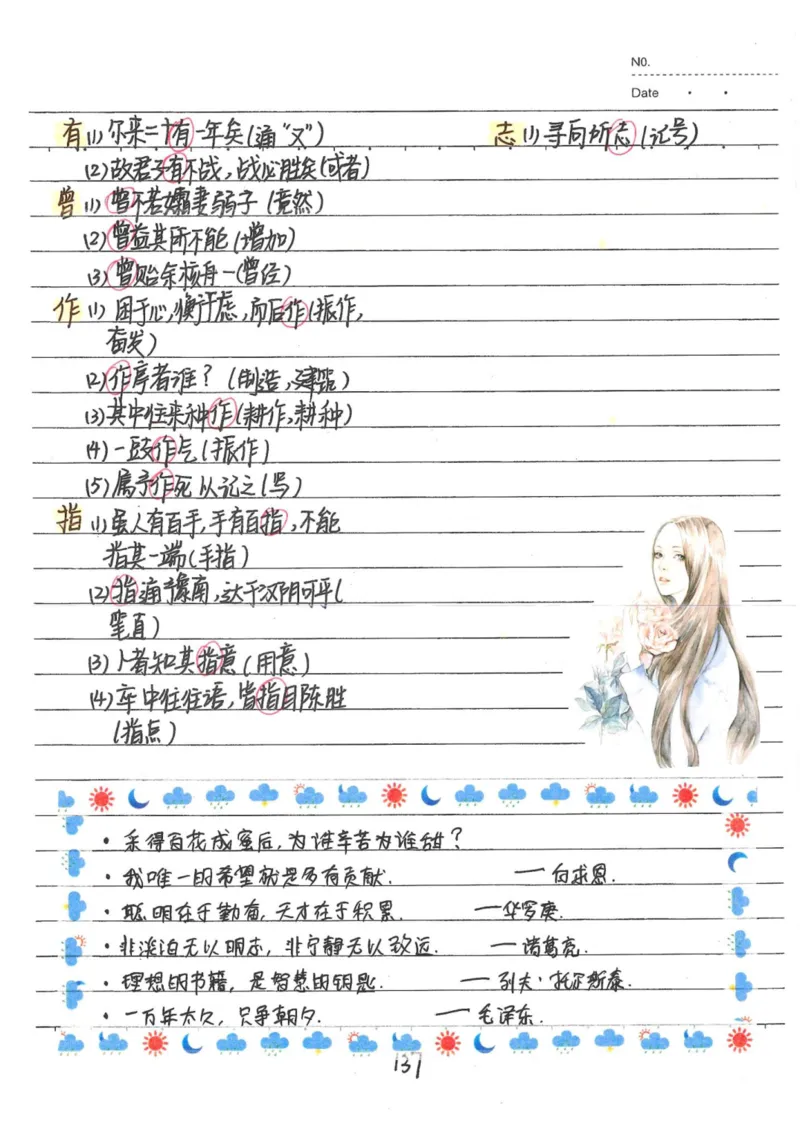 NO.
Date
有(1)尔来二十有一年矣(通“又”)
志(1)寻向所志(记号)
(2)故君子有不战,战必胜矣(或者)
曾(1)曾不若孀妻弱子(竟然)
(2)曾益其所不能(增加)
(3)曾贻余核舟一(曾经)
作(1)困于心,衡于虑,而后作(振作,
奋发)
(2)作亭者谁?(制造,建筑)
(3)其中往来种作(耕作,耕种)
(4)一鼓作气(振作)
(5)属予作死以记之(写)
指(1)虽人有百手,手有百指,不能
指其一端(手指)
(2)指通豫南,达于汉阴可乎(
笔直)
(3)卜者知其指意(用意)
(4)卒中往往语,皆指目陈胜
(指点)
·采得百花成蜜后,为谁辛苦为谁甜?
·我唯一的希望就是多有贡献. —白求恩.
·聪明在于勤奋,天才在于积累. —华罗庚.
·非淡泊无以明志,非宁静无以致远. —诸葛亮.
·理想的书籍,是智慧的钥匙. —列夫·托尔斯泰.
·一万年太久,只争朝夕. —毛泽东.
137